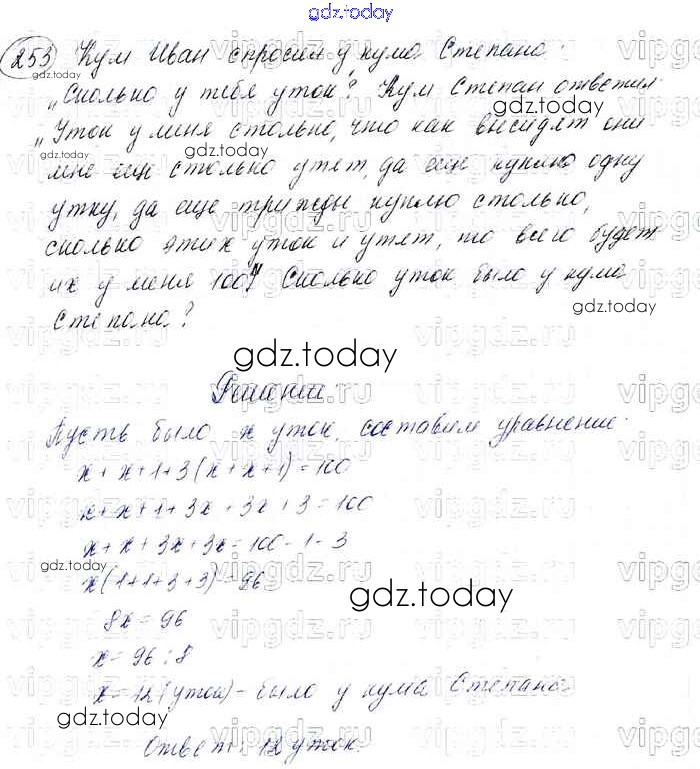 gdz.today
253 Кум Иван спросил у кума Степана:
gdz.today
„Сколько у тебя уток? Кум Степан ответил:
gdz.today
„Уток у меня столько, что как высидят они
gdz.today
мне ещё столько утят, да ещё куплю одну
утку, да ещё трижды куплю столько,
сколько этих уток и утят, то всего будет
их у меня 100". Сколько уток было у кума
gdz.today
Степана?
gdz.today
Решение:
Пусть было x уток, составим уравнение:
x + x + 1 + 3(x + x + 1) = 100
x + x + 1 + 3x + 3x + 3 = 100
x + x + 3x + 3x = 100 - 1 - 3
gdz.today
x(1+1+3+3) = 96
gdz.today
8x = 96
x = 96 : 8
x = 12 (уток) - было у кума Степана.
gdz.today
Ответ: 12 уток.
gdz.today
vipgdz.ru